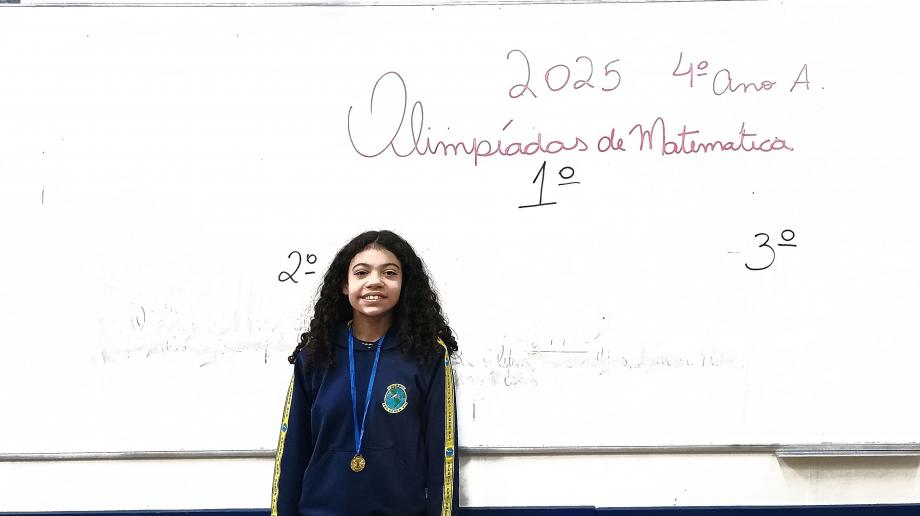 2025 4º Ano A.
Olimpíadas de Matematica
1º
2º
3º